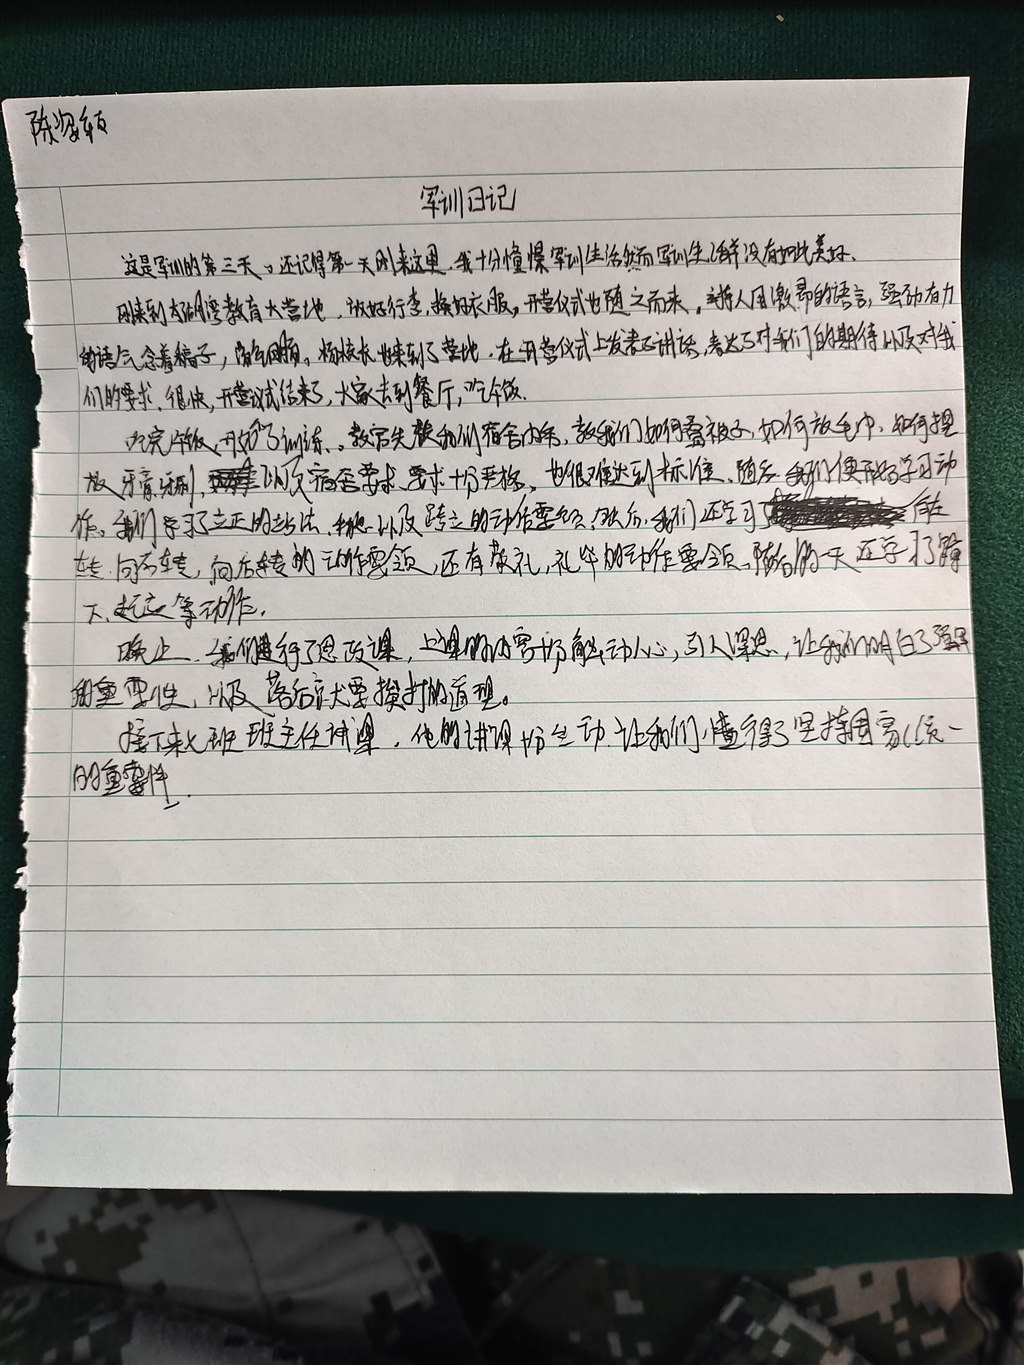 军训日记
这是军训的第三天,还记得第一天刚来这里,我十分憧憬军训生活然而军训生活并没有如此美好.
刚来到 教育大营地,放好行李,换好衣服,开营仪式也随之而来,主持人用激昂的语言,强劲有力
的语气念着稿子, 杨校长也来到了营地,在开营仪式上发表了讲话,表达了对我们的期待以及对我
们的要求.很快,开营仪式结束了,大家去到餐厅,吃午饭.
吃完午饭,开始了训练,教官先教我们宿舍内务,教我们如何叠被子,如何放毛巾,如何摆
放牙膏牙刷, 以及宿舍要求,要求十分严格,也很难达到标准.随后我们便开始学习动
作,我们学习了立正的站法, 以及跨立的动作要领,然后,我们还学习 向左
转,向右转,向后转的动作要领,还有敬礼,礼毕的动作要领, 的一天还学了蹲
下,起立等动作.
晚上,我们进行了思政课,上课的内容十分触动人心,引人深思,让我们明白了强军
的重要性,以及落后就要挨打的道理。
接下来七班班主任讲课,他的讲课十分生动,让我们懂得了坚持国家统一
的重要性.